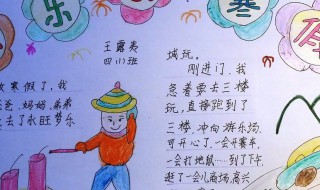 乐
寒
假
王露荑
四(1)班
放寒假了,我
爸爸、妈妈、弟弟
去了永旺梦乐
城玩。
刚进门,我
急着要去三楼
玩,直接跑到了
三楼,冲向游乐场.
可开心了,一会开赛车,
一会打地鼠……到了下午,
逛了一会儿商场,高兴